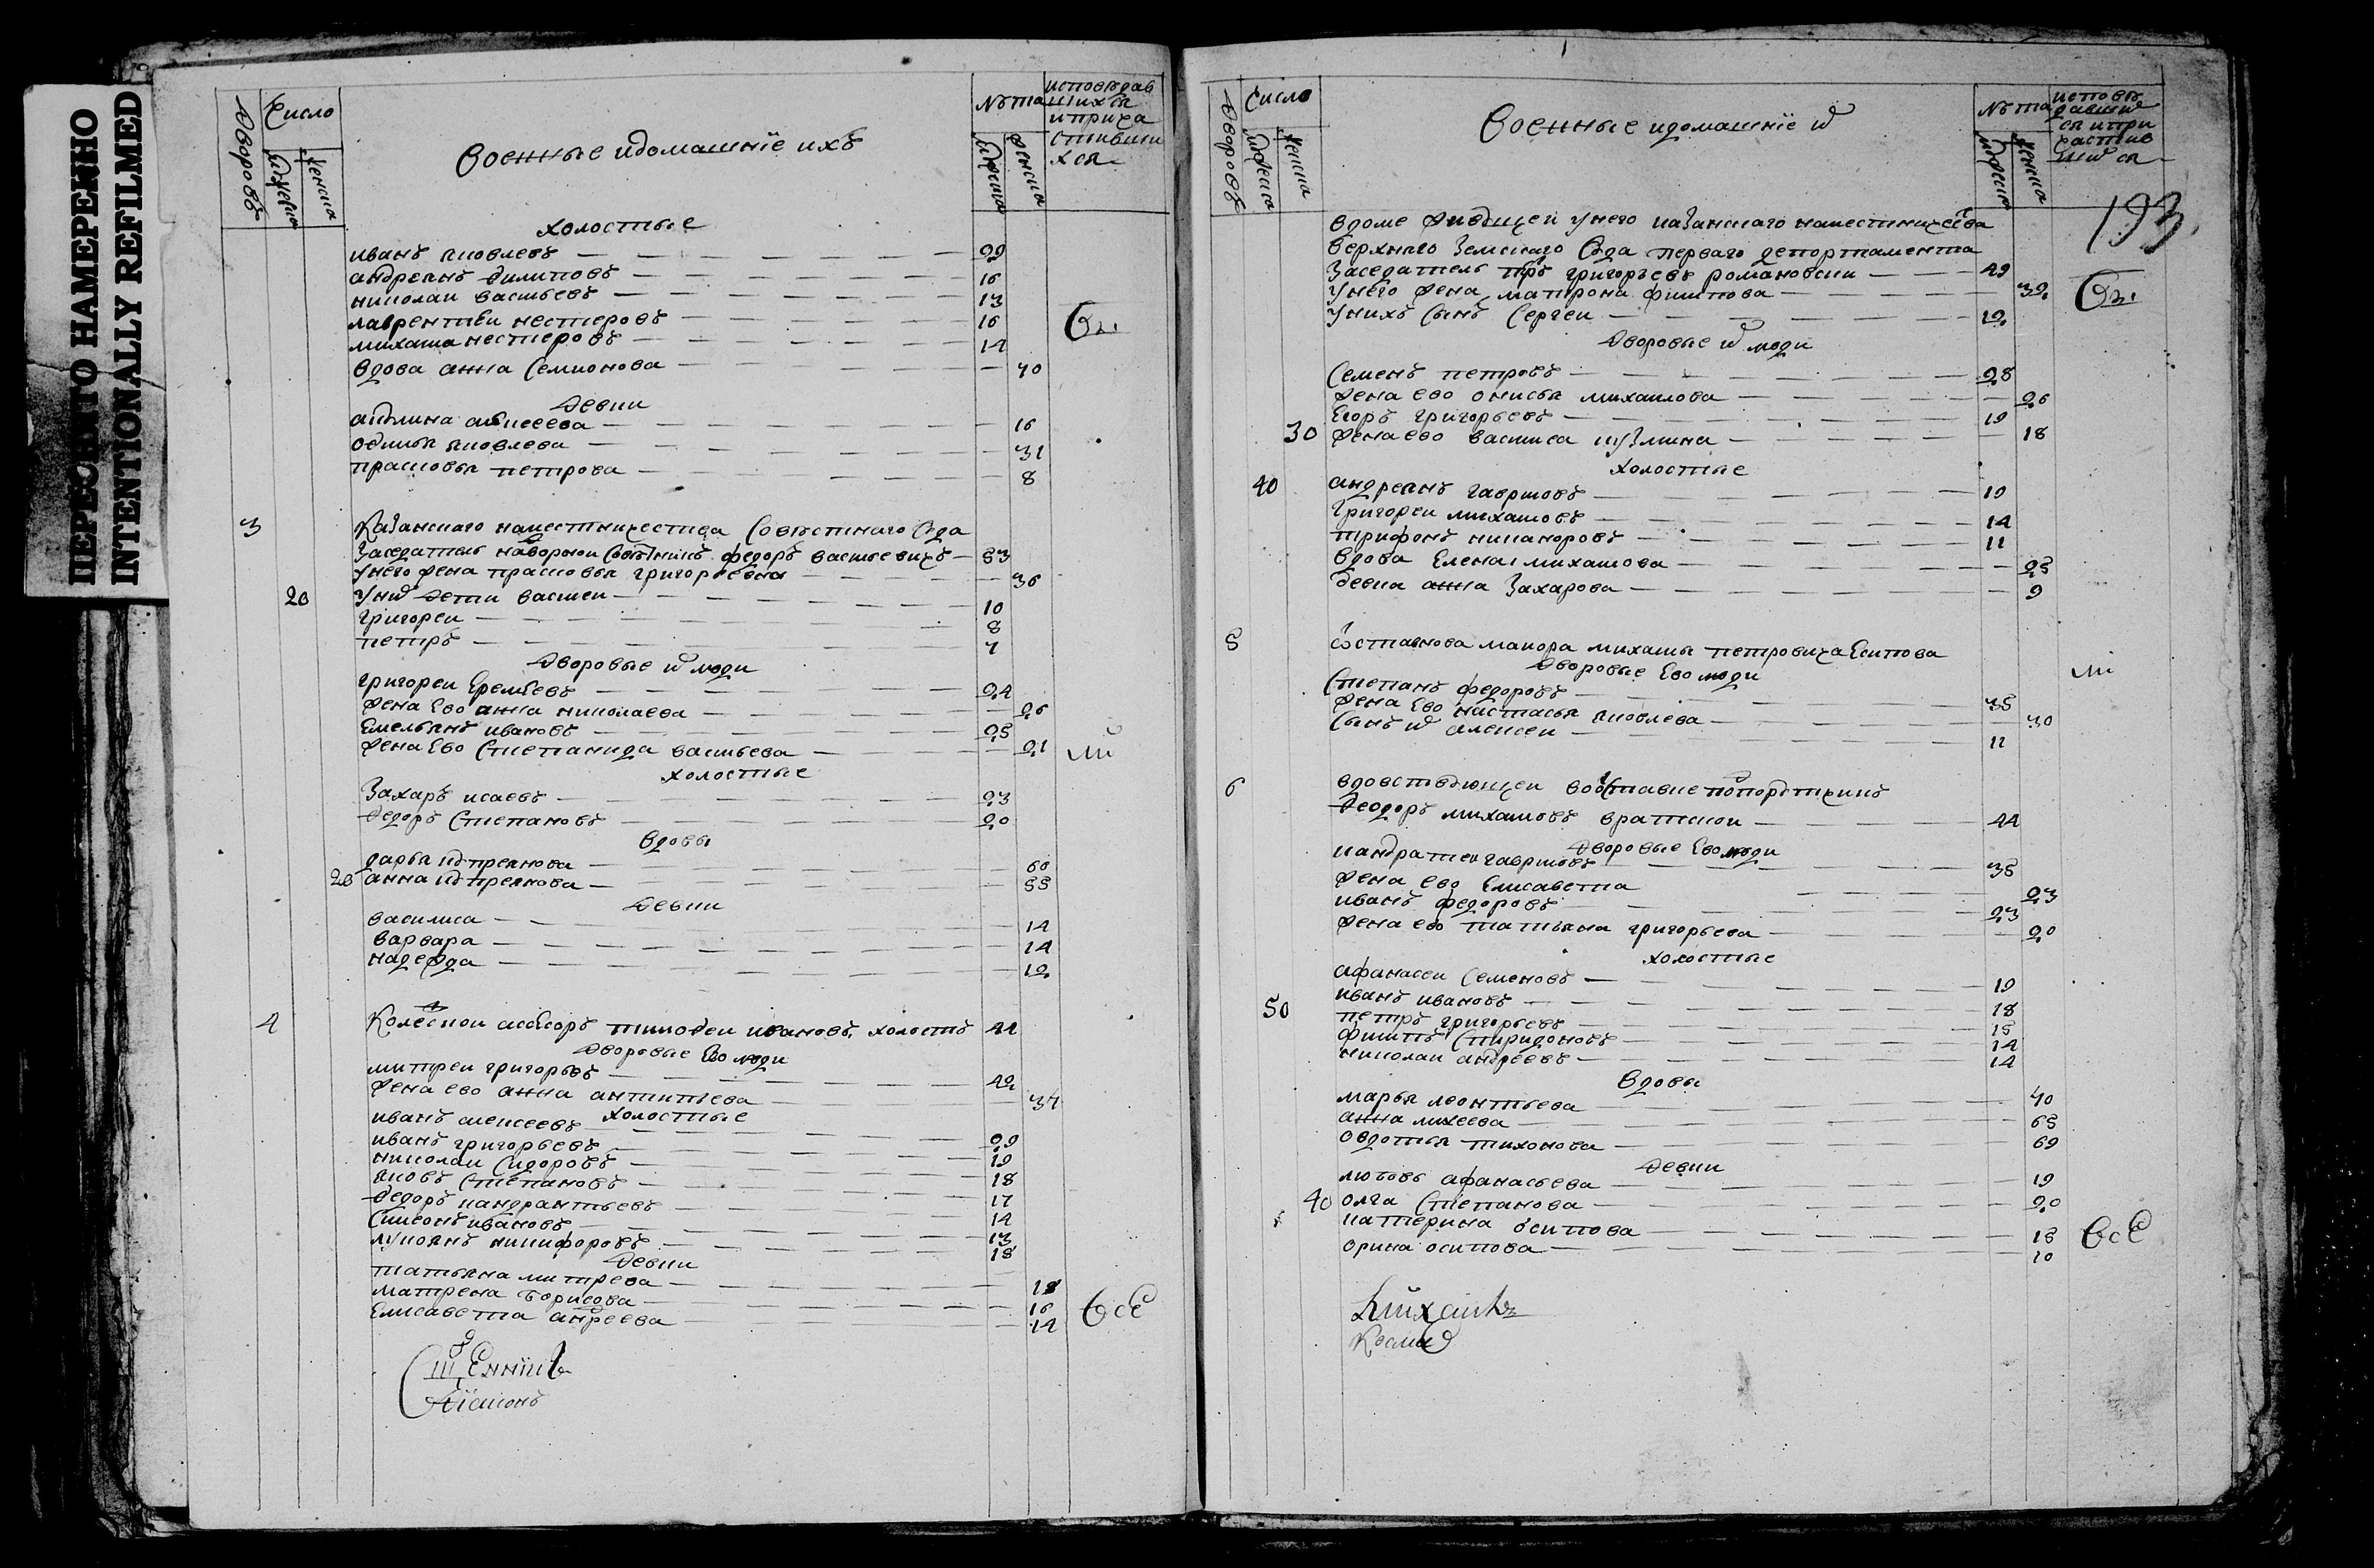 ПЕРЕСНЯТО НАМЕРЕННО
INTENTIONALLY REFILMED
Дворовъ
Число
мужеска
женска
Военные идомашнїе ихъ
Лѣта
мужеска
женска
исповѣдав
шихся
иприча
стивши
хся
холостые
иванъ яковлевъ 29
андреянъ филиповъ 16
николаи васильевъ 13
лаврентеи нестеровъ 16
михаила нестеровъ 14
вдова анна Семионова 40
Девки
акѣлина алексеева 16
офимья яковлева 31
прасковья петрова 8
3 Казанскаго наместничества Совѣстнаго Сѣда
Заседатель надворнои Совѣтникъ федоръ васильевичъ 53
унего жена прасковья григорьевна 36
20 уних дети василеи 10
григореи 8
петръ 7
Дворовые их люди
григореи Еремѣевъ 24
жена Ево анна николаева 26
Емельянъ ивановъ 25
жена Ево Степанида васильева 21
холостые
Захаръ исаевъ 23
Федоръ Степановъ 20
вдовы
дарья кѣпреянова 60
20 анна кѣпреянова 55
Девки
василиса 14
варвара 14
надежда 12
4 Колеской асесоръ тимофеи ивановъ холостъ 44
Дворовые Ево люди
митреи григорьевъ 42
жена ево анна антипьева 37
холостые
иванъ алексеевъ
иванъ григорьевъ 29
николаи Сидоровъ 19
яковъ Степановъ 18
Федоръ кандрантьевъ 17
Симеонъ ивановъ 14
лукоянъ никифоровъ 13
18
Девки
татьяна митрева 18
матрена борисова 16
Елисавета андреева 14
Всѣ
Дїаконъ
Дворовъ
Число
мужеска
женска
Военные идомашнїе их
Лѣта
мужеска
женска
исповѣ
давших
ся ипри
частив
ших ся
193
вдоме живѣщеи унего казанскаго наместничества
верхняго Земскаго Сѣда перваго департамента
Заседатель петръ григорьевъ романовски 49
унего жена матрона филипова 32
унихъ Сынъ Сергеи 12
Дворовые их люди
Семенъ петровъ 28
жена ево онисья михаилова 26
Егоръ григорьевъ 19
30 жена ево василиса кузмина 18
холостые
40 андреянъ гавриловъ 19
григореи михаиловъ 14
трифонъ никаноровъ 11
вдова Елена михаилова 25
девка анна Захарова 9
5 Отставнова маиора михаилы петровича Есипова
Дворовые Ево люди
Степанъ федоровъ
жена Ево настасья яковлева 35
30
Сынъ их алексеи 11
6 вдовствѣющеи воотставке подпорѣтчикъ
Феодоръ михаиловъ братской 44
Дворовые Ево люди
кандратеи гавриловъ 38
жена ево Елисавета 23
иванъ федоровъ 23
жена ево татьяна григорьева 20
холостые
афанасеи Семеновъ 19
иванъ ивановъ 18
50 петръ григорьевъ 15
филипъ Спиридоновъ 14
николаи андреевъ 14
вдовы
марья леонтьева 40
анна михеева 65
овдотья тихонова 69
Девки
любовь афанасьева 19
40 олга Степанова 20
катерина осипова 18
орина осипова 10
Всѣ
Михаилъ
Косма